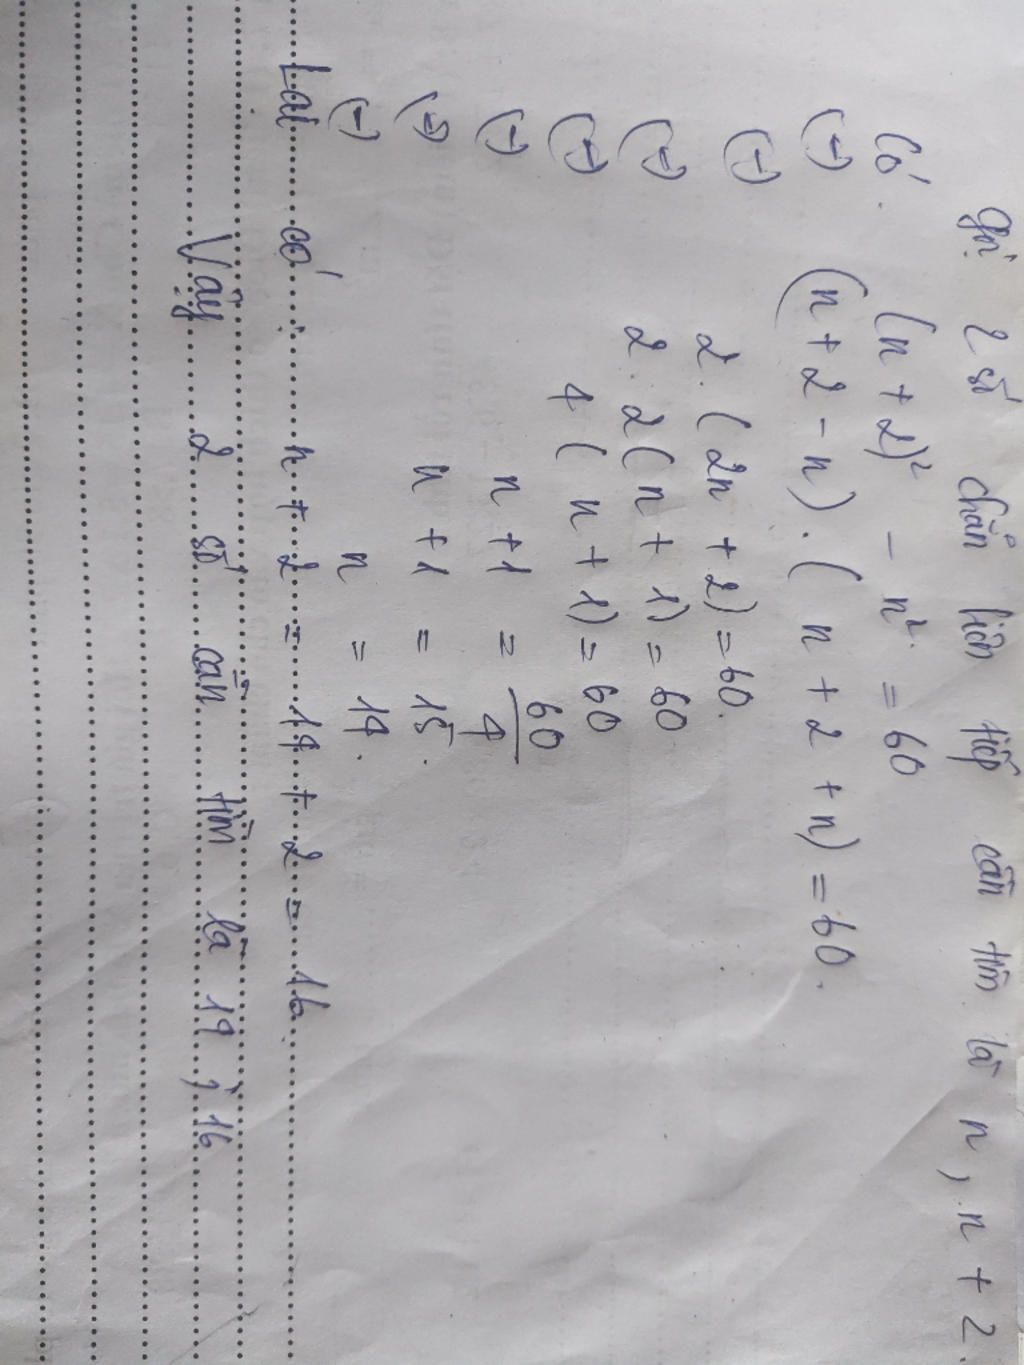 Gọi 2 số chẵn liên tiếp cần tìm là n, n + 2.
Có: (n + 2)² - n² = 60
(-) (n + 2 - n) . ( n + 2 + n) = 60.
(-) 2. ( 2n + 2) = 60.
(-) 2. 2( n + 1) = 60
(-) 4 ( n + 1) = 60
(-) n + 1 = 60/4
(-) n + 1 = 15.
(-) n = 14.
Lại có : n + 2 = 14 + 2 = 16.
Vậy 2 số cần tìm là 14 ; 16